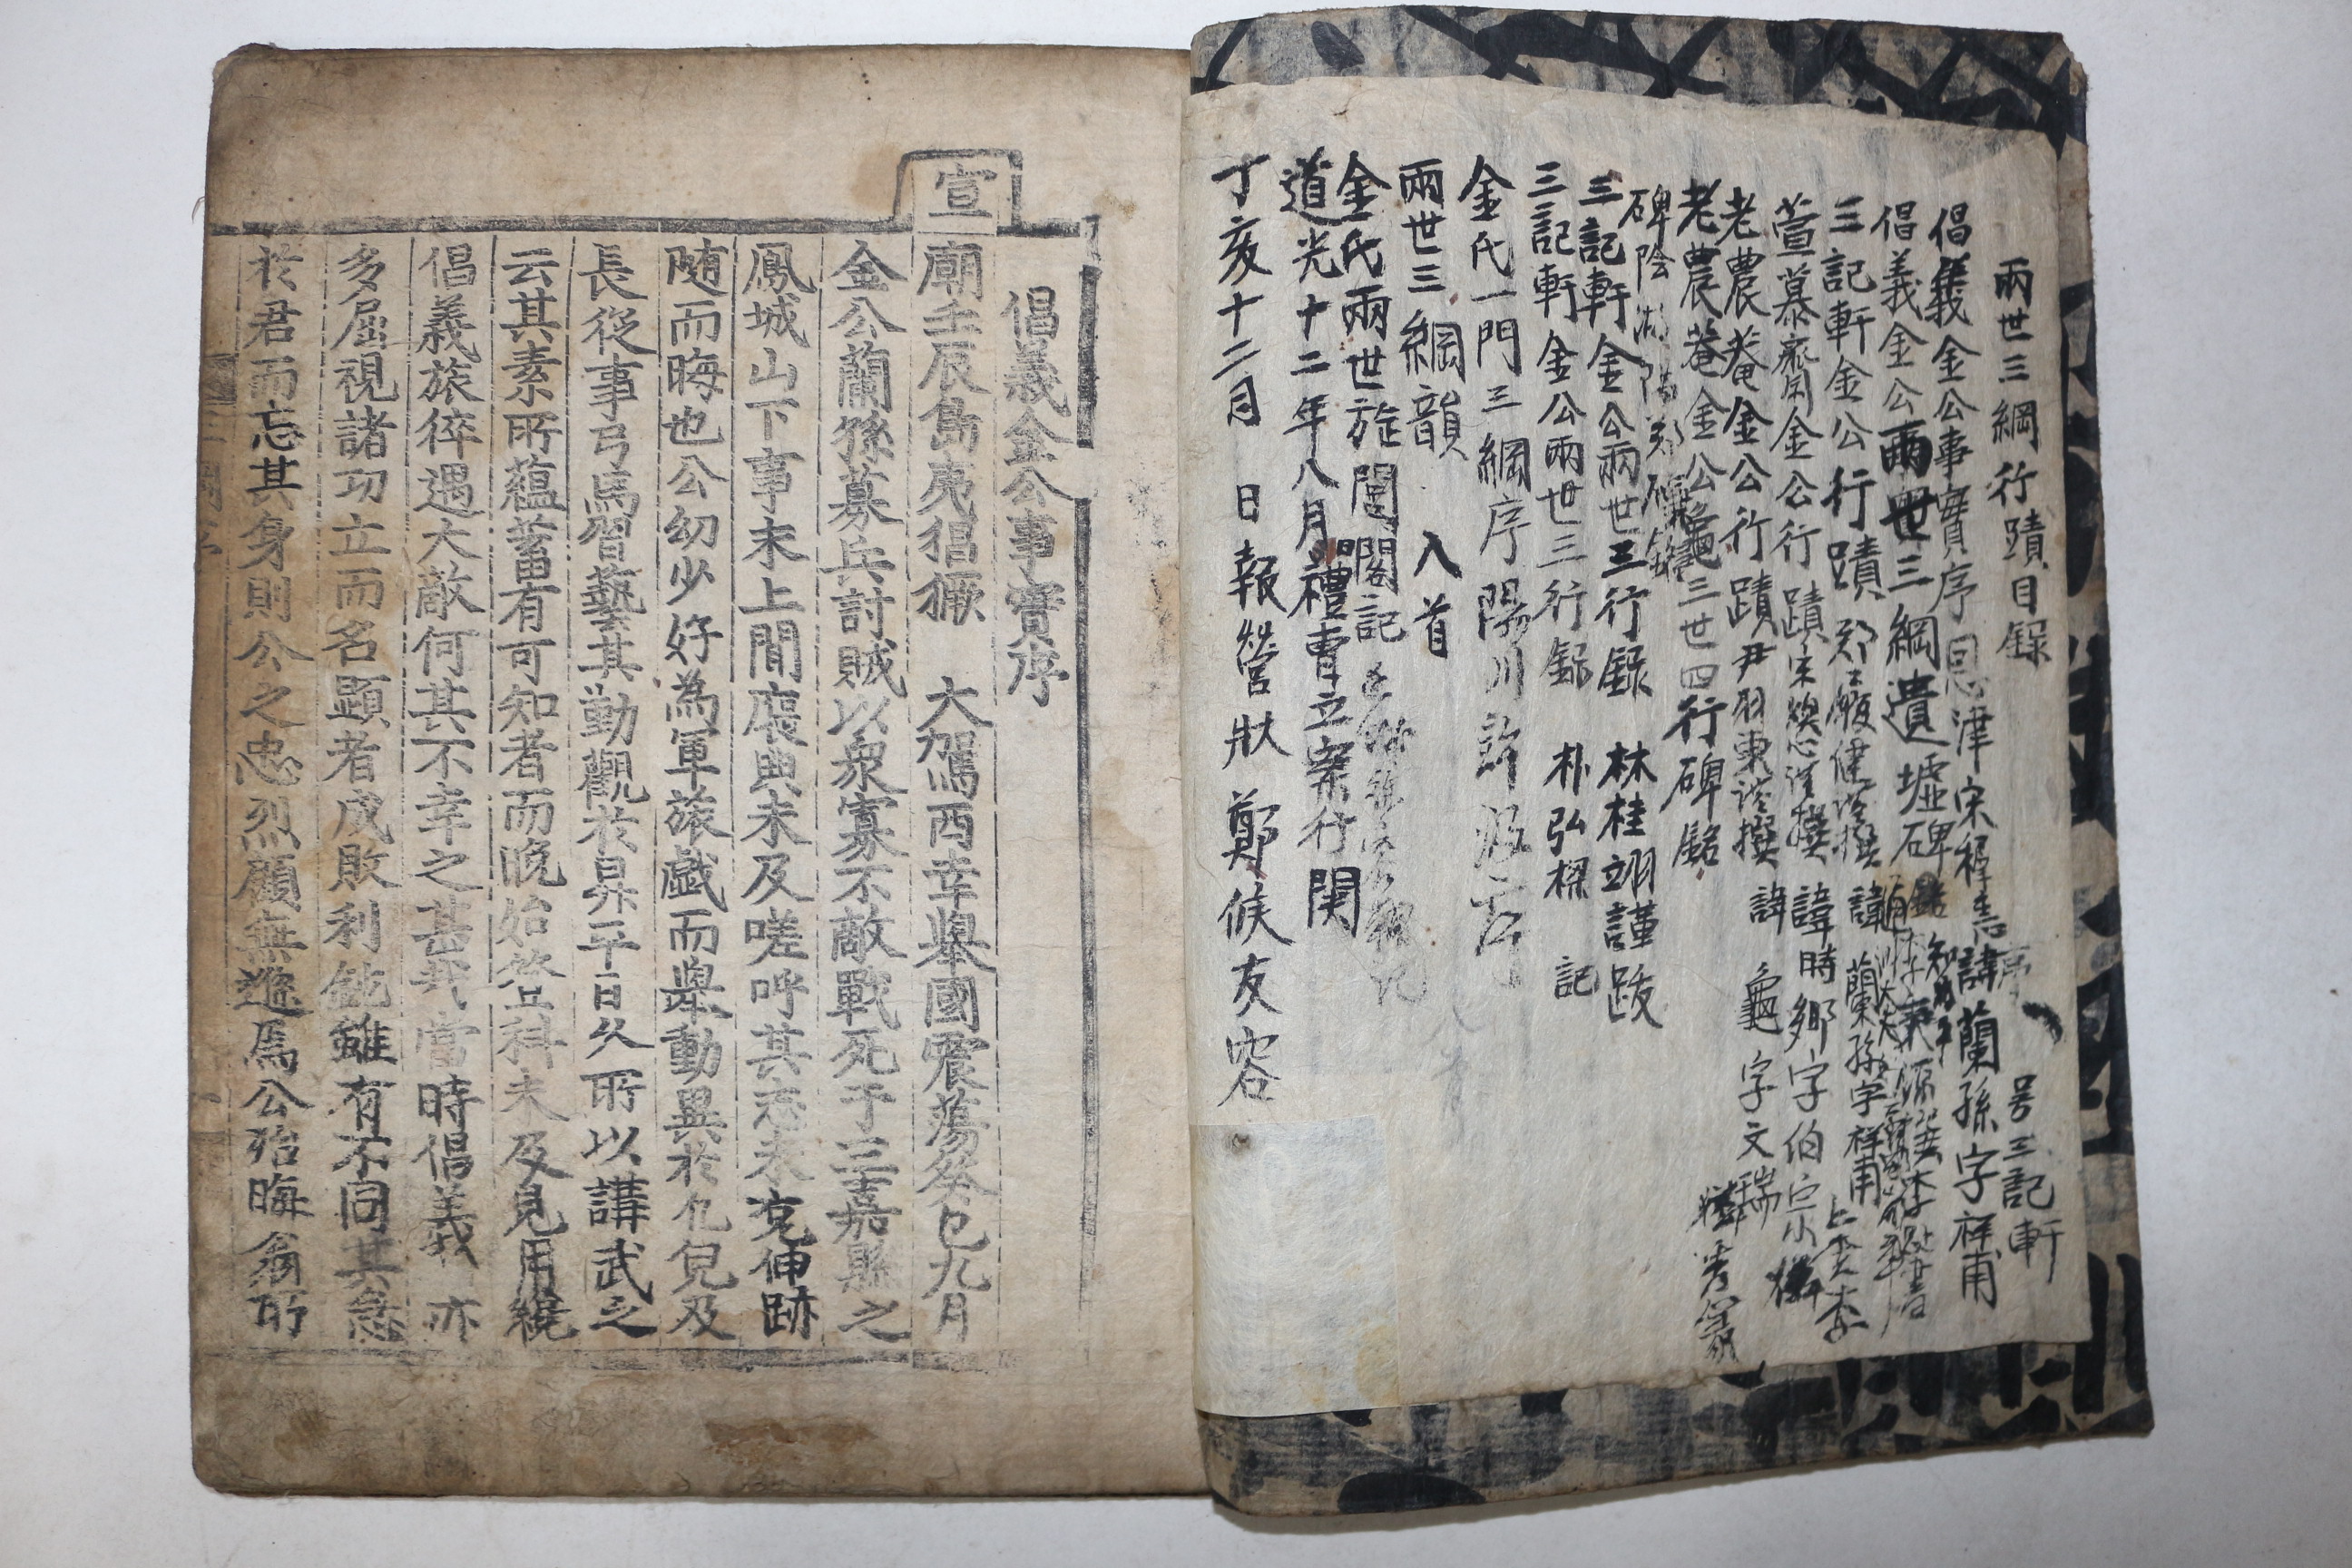 兩世三綱行蹟目錄
倡義金公事實序 恩津宋穉圭序 諱蘭孫字祥甫 号三記軒
倡義金公兩世三綱遺墟碑銘
三記軒金公行蹟 謹撰 諱蘭孫字祥甫
萱慕齋金公行蹟 宋煥心謹撰 諱時鄕字伯宗
老農菴金公行蹟 尹羽東謹撰 諱龜字文瑞
老農菴金公龜三世四行碑銘
碑陰
三記軒金公兩世三行錄 林桂翊謹跋
三記軒金公兩世三行錄 朴弘樑記
金氏一門三綱序 陽川許
兩世三綱韻 八首
金氏兩世旌閭閣記
道光十二年八月禮曹立案行関
丁亥十二月 日報營狀 鄭候友容
倡義金公事實序
宣廟壬辰島夷猖獗 大駕西幸擧國震蕩癸巳九月
金公蘭孫募兵討賊以衆寡不敵戰死于三嘉縣之
鳳城山下事未上聞褒典未及嗟呼其志未克伸跡
随而晦也公幼少好為軍旅戱而擧動異於凡兒及
長從事弓馬習藝甚勤觀於昇平日久所以講武之
云其素所蘊蓄有可知者而晚始登科未及見用纔
倡義旅猝遇大敵何其不幸之甚哉當時倡義亦
多屈視諸功立而名顯者成敗利鈍雖有不同其急
於君而忘其身則公之忠烈顧無遜焉公殆晦翁所